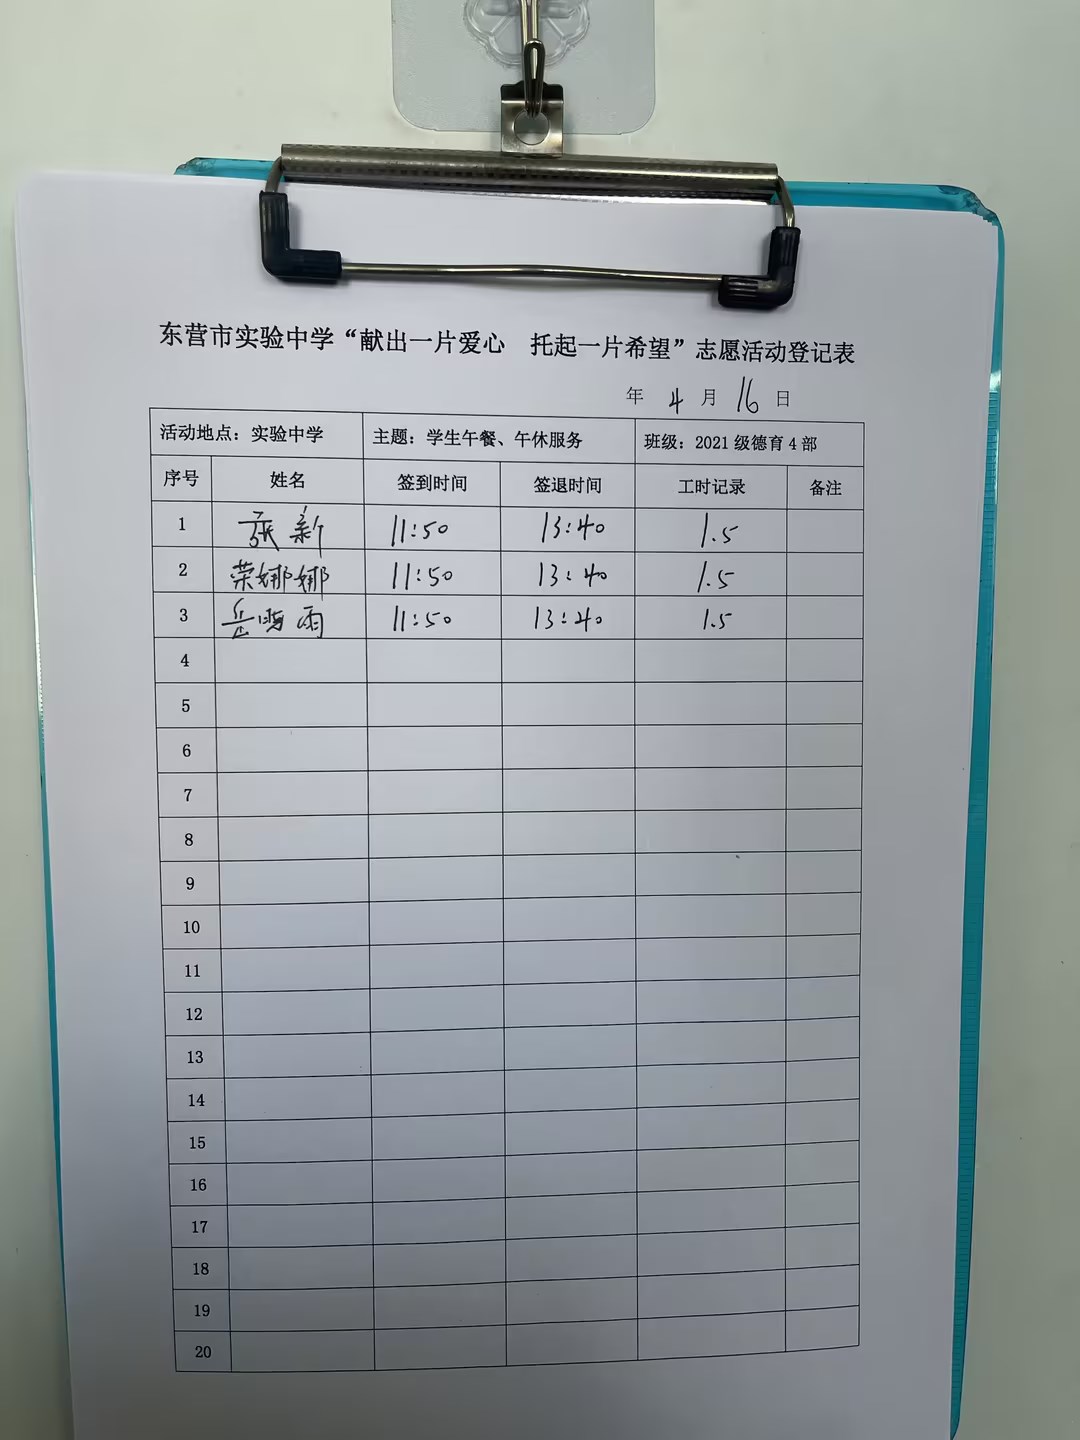 东营市实验中学“献出一片爱心 托起一片希望”志愿活动登记表
年 4 月 16 日
活动地点：实验中学 主题：学生午餐、午休服务 班级：2021级德育4部
序号 姓名 签到时间 签退时间 工时记录 备注
1 新 11:50 13:40 1.5
2 荣娜娜 11:50 13:40 1.5
3 岳 雨 11:50 13:40 1.5
4
5
6
7
8
9
10
11
12
13
14
15
16
17
18
19
20